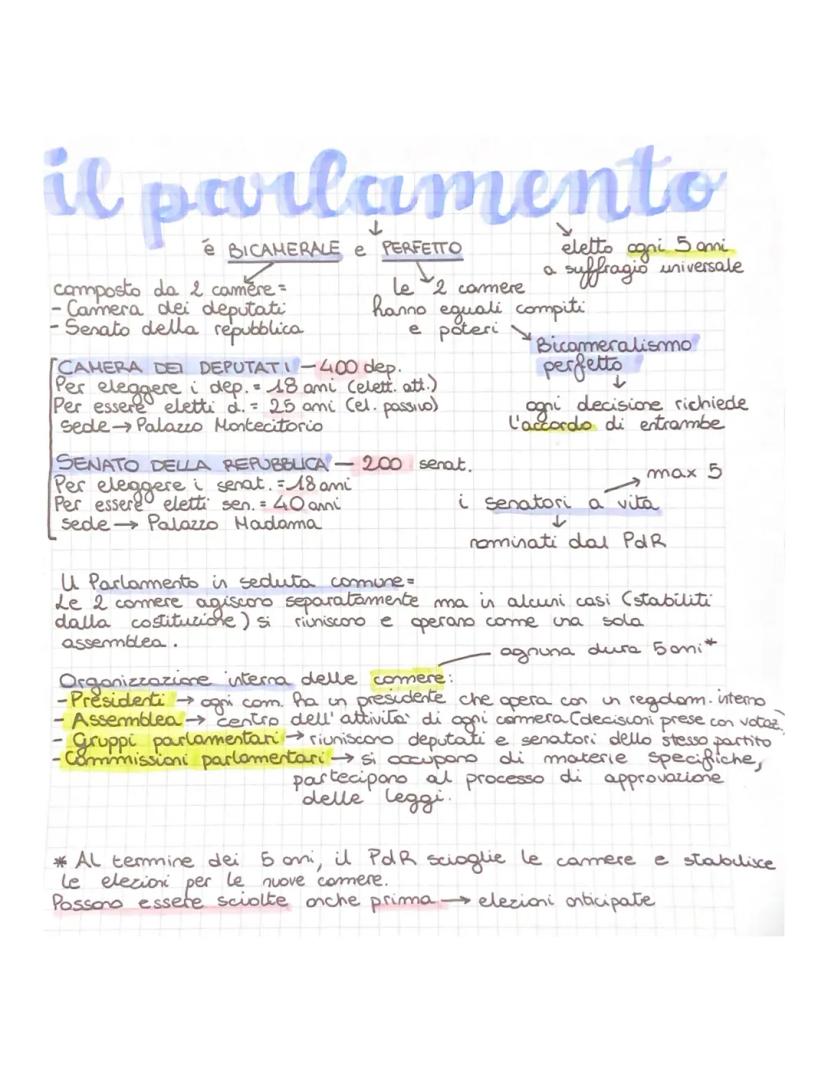 il parlamento
è BICAMERALE e PERFETTO
eletto ogni 5 anni
a suffragio universale
composto da 2 camere =
- Camera dei deputati
- Senato della repubblica
le 2 camere
hanno eguali compiti
e poteri
Bicameralismo
perfetto
ogni decisione richiede
l'accordo di entrambe
CAMERA DEI DEPUTATI — 400 dep.
Per eleggere i dep. = 18 anni (elett. att.)
Per essere eletti d. = 25 anni (el. passivo)
Sede → Palazzo Montecitorio
SENATO DELLA REPUBBLICA — 200 senat.
Per eleggere i senat. = 18 anni
Per essere eletti sen. = 40 anni
Sede → Palazzo Madama
max 5
i senatori a vita
nominati dal PdR
Il Parlamento in seduta comune =
Le 2 camere agiscono separatamente ma in alcuni casi (stabiliti
dalla costituzione) si riuniscono e operano come una sola
assemblea.
ognuna dura 5 anni*
Organizzazione interna delle camere:
- Presidenti → ogni cam. ha un presidente che opera con un regolam. interno
- Assemblea → centro dell'attività di ogni camera (decisioni prese con votaz.)
- Gruppi parlamentari → riuniscono deputati e senatori dello stesso partito
- Commissioni parlamentari → si occupano di materie specifiche,
partecipano al processo di approvazione
delle leggi.
* Al termine dei 5 anni, il PdR scioglie le camere e stabilisce
le elezioni per le nuove camere.
Possono essere sciolte anche prima → elezioni anticipate